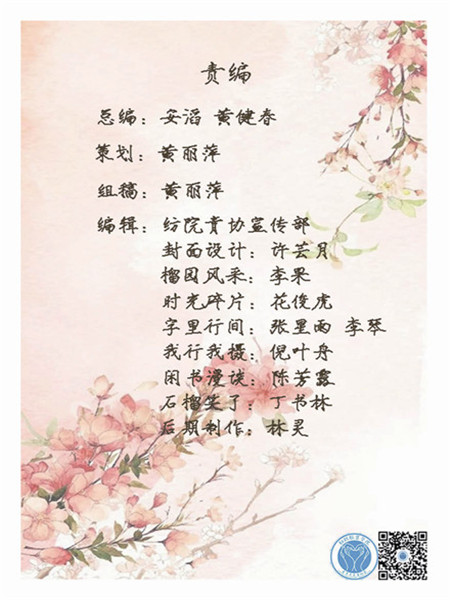 责编
总编：安滔 黄健春
策划：黄丽萍
组稿：黄丽萍
编辑：纺院青协宣传部
封面设计：许芸月
榴园风采：李果
时光碎片：花俊虎
字里行间：张里雨 李琴
我行我摄：倪叶舟
闲书漫谈：陈芳露
石榴笑了：丁书林
后期制作：林灵